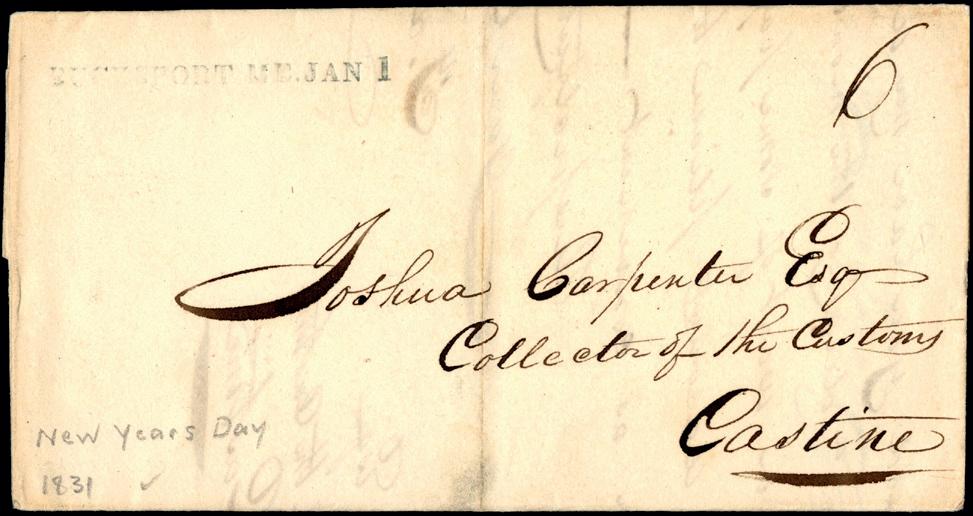 BUCKSPORT ME. JAN 1
6
Joshua Carpenter Esq
Collector of the Customs
Castine
New Years Day
1831